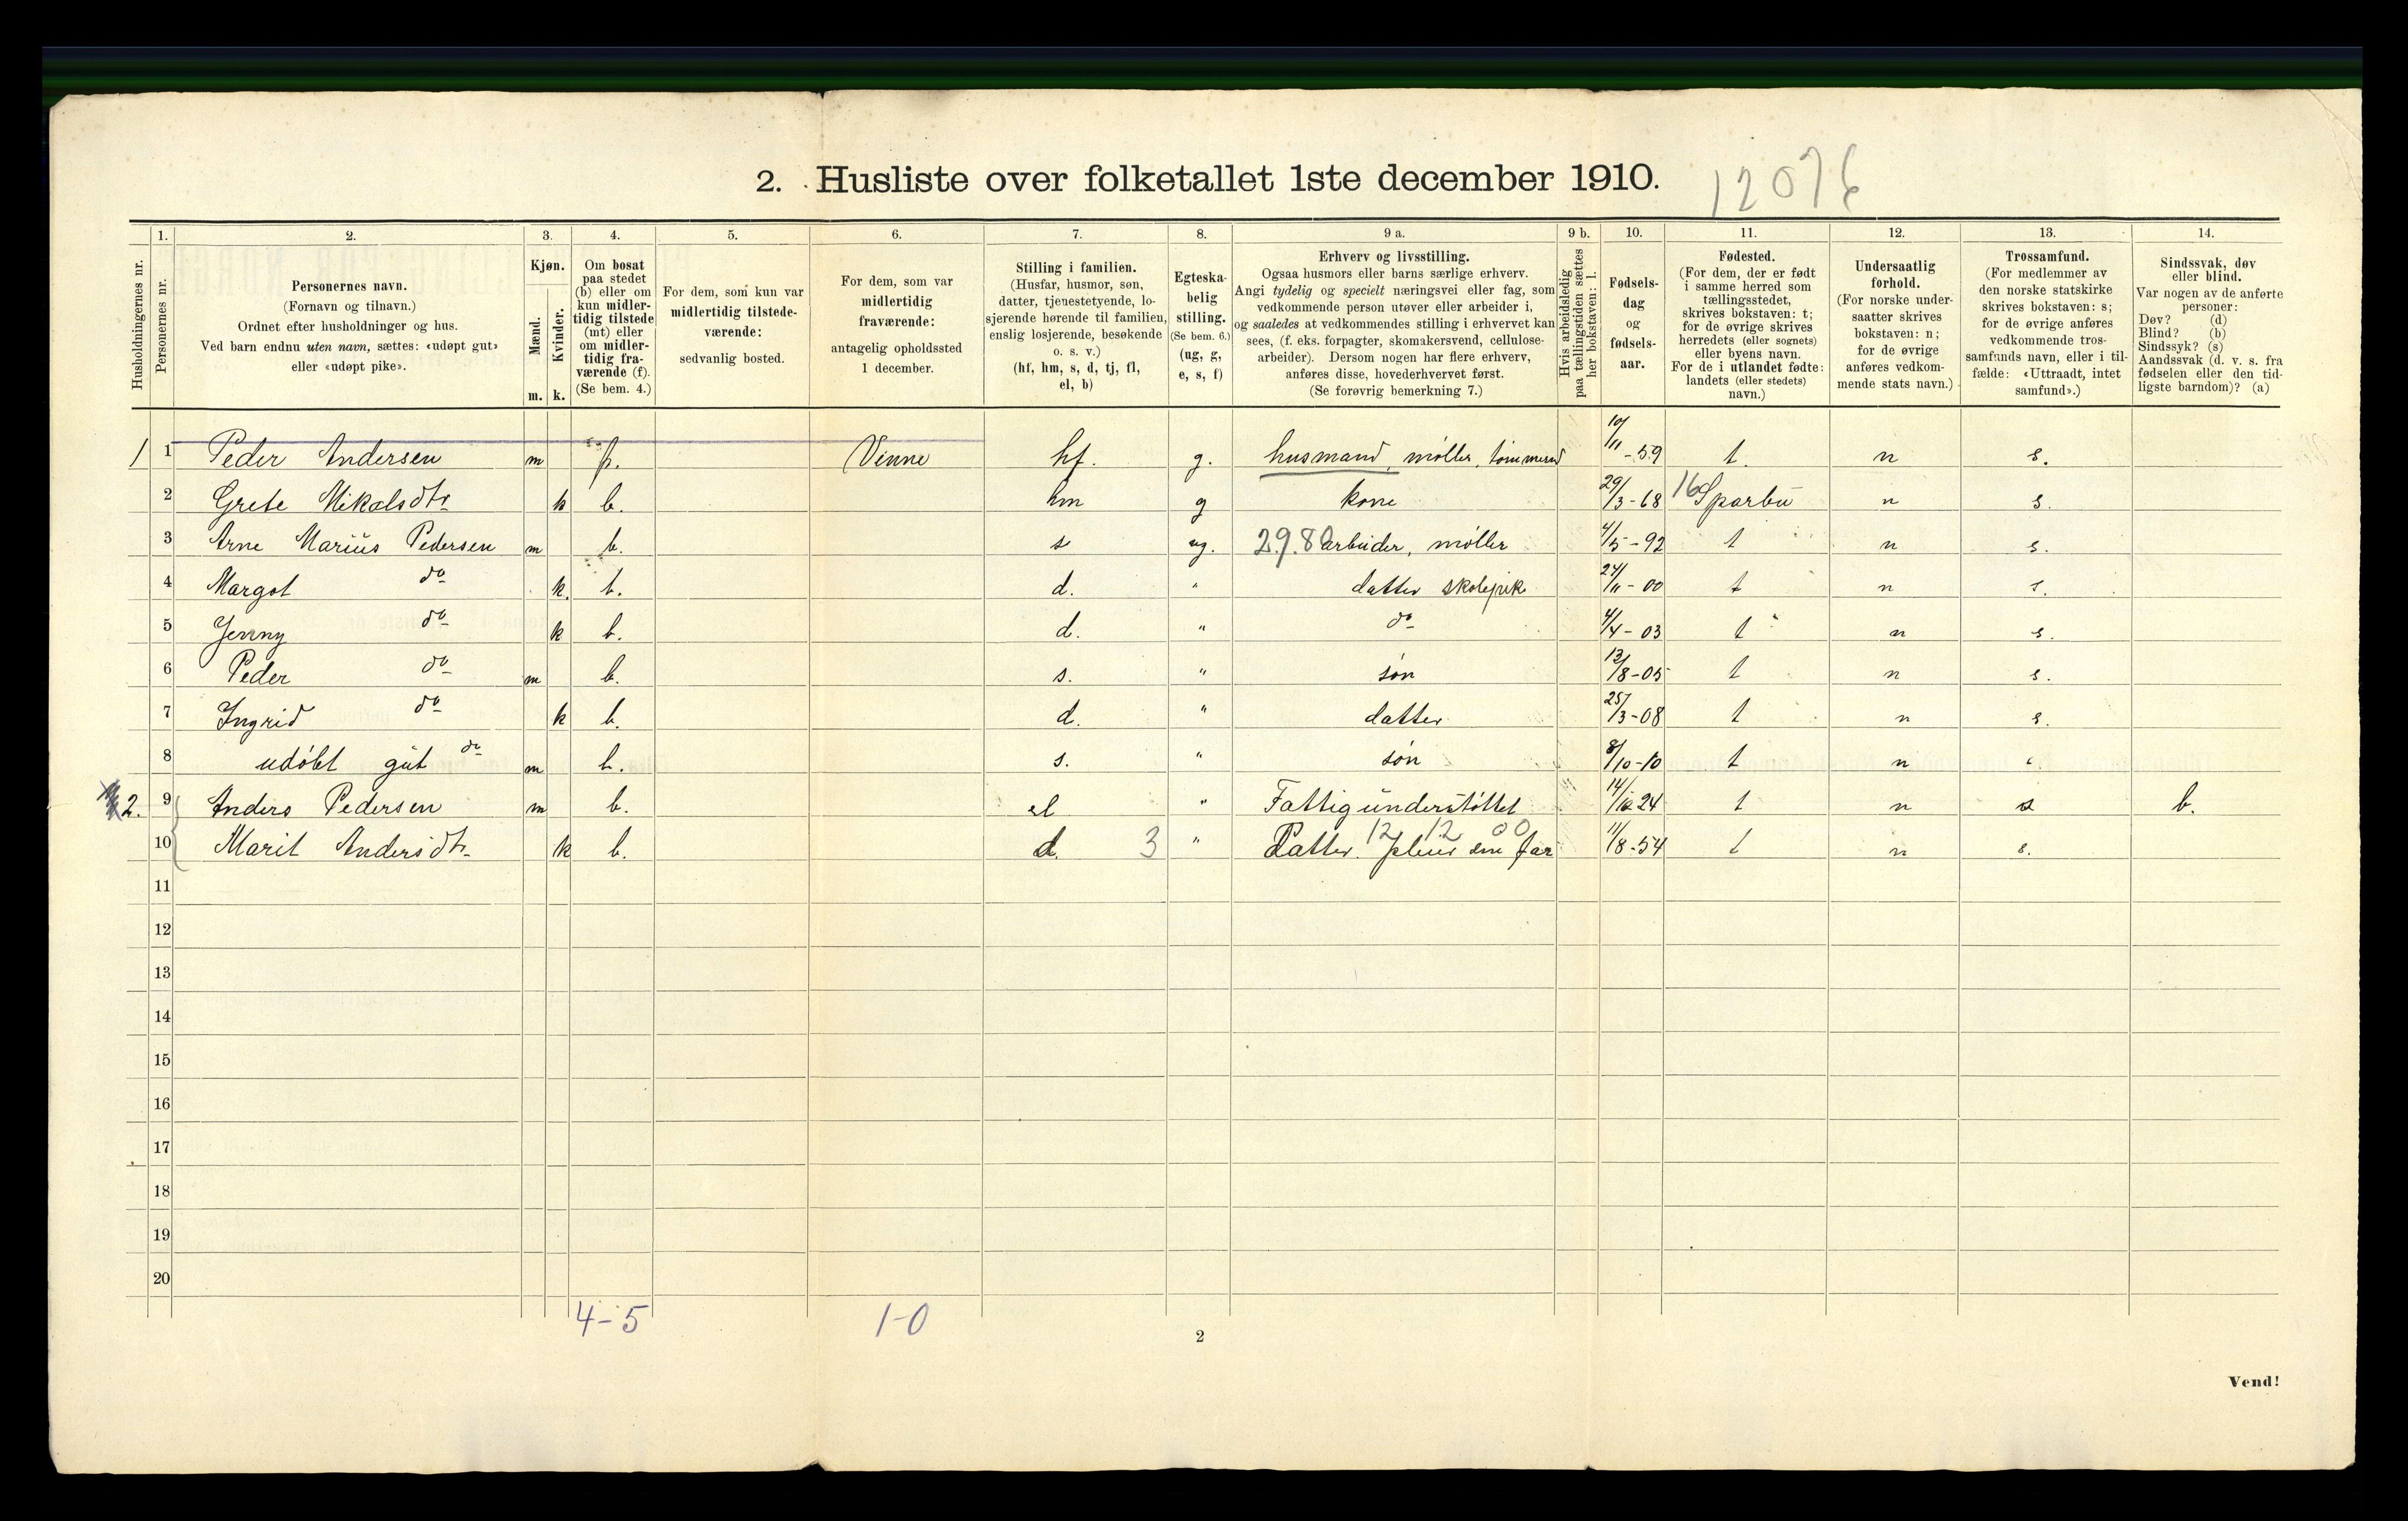 2. Husliste over folketallet 1ste december 1910. 12076
1. 2. 3. 4. 5. 6. 7. 8. 9 a. 9 b. 10. 11. 12. 13. 14.
Husholdningernes nr.
Personernes nr.
Personernes navn.
(Fornavn og tilnavn.)
Ordnet efter husholdninger og hus.
Ved barn endnu uten navn, sættes: «udøpt gut»
eller «udøpt pike».
Kjøn.
Mænd.
Kvinder.
m. k.
Om bosat
paa stedet
(b) eller om
kun midler-
tidig tilstede
(mt) eller
om midler-
tidig fra-
værende (f).
(Se bem. 4.)
For dem, som kun var
midlertidig tilstede-
værende:
sedvanlig bosted.
For dem, som var
midlertidig
fraværende:
antagelig opholdssted
1 december.
Stilling i familien.
(Husfar, husmor, søn,
datter, tjenestetyende, lo-
sjerende hørende til familien,
enslig losjerende, besøkende
o. s. v.)
(hf, hm, s, d, tj, fl,
el, b)
Egteska-
belig
stilling.
(Se bem. 6.)
(ug, g,
e, s, f)
Erhverv og livsstilling.
Ogsaa husmors eller barns særlige erhverv.
Angi tydelig og specielt næringsvei eller fag, som
vedkommende person utøver eller arbeider i,
og saaledes at vedkommendes stilling i erhvervet kan
sees, (f. eks. forpagter, skomakersvend, cellulose-
arbeider). Dersom nogen har flere erhverv,
anføres disse, hovederhvervet først.
(Se forøvrig bemerkning 7.)
Hvis arbeidsledig
paa tællingstiden sættes
her bokstaven: l.
Fødsels-
dag
og
fødsels-
aar.
Fødested.
(For dem, der er født
i samme herred som
tællingsstedet,
skrives bokstaven: t;
for de øvrige skrives
herredets (eller sognets)
eller byens navn.
For de i utlandet fødte:
landets (eller stedets)
navn.)
Undersaatlig
forhold.
(For norske under-
saatter skrives
bokstaven: n;
for de øvrige
anføres vedkom-
mende stats navn.)
Trossamfund.
(For medlemmer av
den norske statskirke
skrives bokstaven: s;
for de øvrige anføres
vedkommende tros-
samfunds navn, eller i til-
fælde: «Uttraadt, intet
samfund».)
Sindssvak, døv
eller blind.
Var nogen av de anførte
personer:
Døv? (d)
Blind? (b)
Sindssyk? (s)
Aandssvak (d. v. s. fra
fødselen eller den tid-
ligste barndom)? (a)
1 1 Peder Andersen m f. Vinne hf. g. husmand, møller, tømmermd 10/11-59 t. n s.
2 Grete Mikalsdtr k b. hm g kone 29/3-68 16 Sparbu n s.
3 Arne Marius Pedersen m b. s ug. 29.80 arbeider, møller 4/5-92 t n s.
4 Margot do k. b. d. " datter skolepik 24/11-00 t n s.
5 Jenny do k b. d. " do 4/4-03 t n s.
6 Peder do m b. s. " søn 13/8-05 t n s.
7 Ingrid do k b. d. " datter 25/3-08 t n s.
8 udøbt gut do m b. s. " søn 8/10-10 t n s.
2. 9 Anders Pedersen m b. el " Fattigunderstøttet 14/12 24 t n s b.
10 Marit Andersdtr. k b. d. 3 " Datter. 12 12 00 pleier sin far 11/8-54 t n s.
11
12
13
14
15
16
17
18
19
20
4-5 1-0
2
Vend!